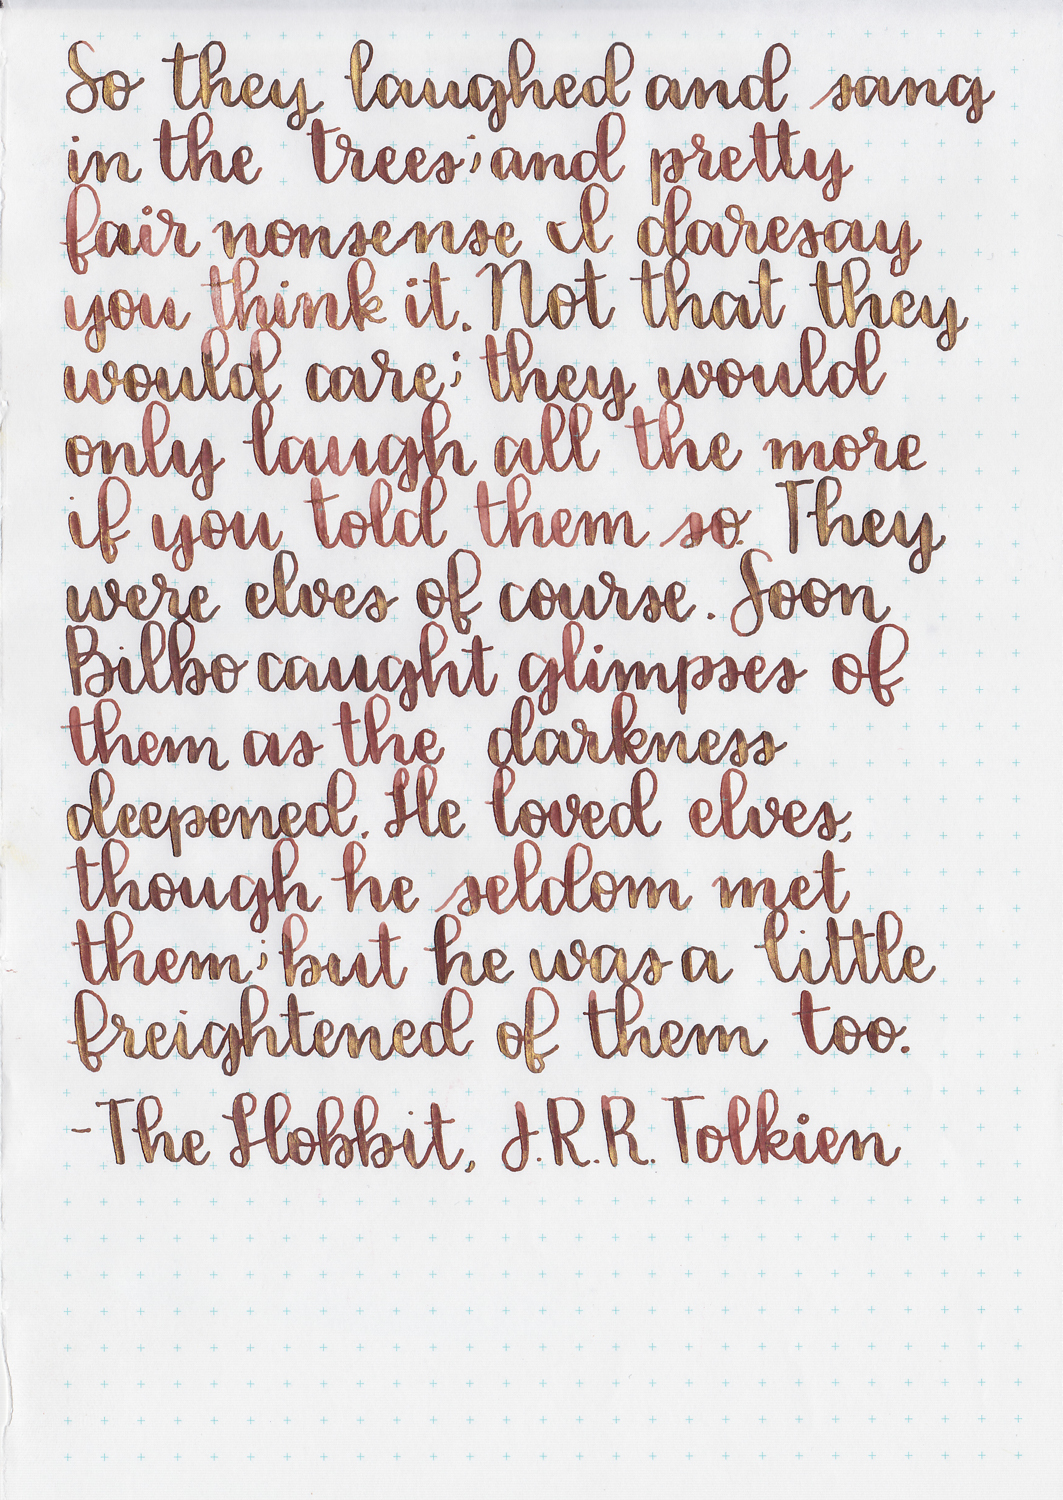 So they laughed and sang
in the trees; and pretty
fair nonsense I daresay
you think it. Not that they
would care; they would
only laugh all the more
if you told them so. They
were elves of course. Soon
Bilbo caught glimpses of
them as the darkness
deepened. He loved elves,
though he seldom met
them; but he was a little
freightened of them too.
-The Hobbit, J.R.R. Tolkien